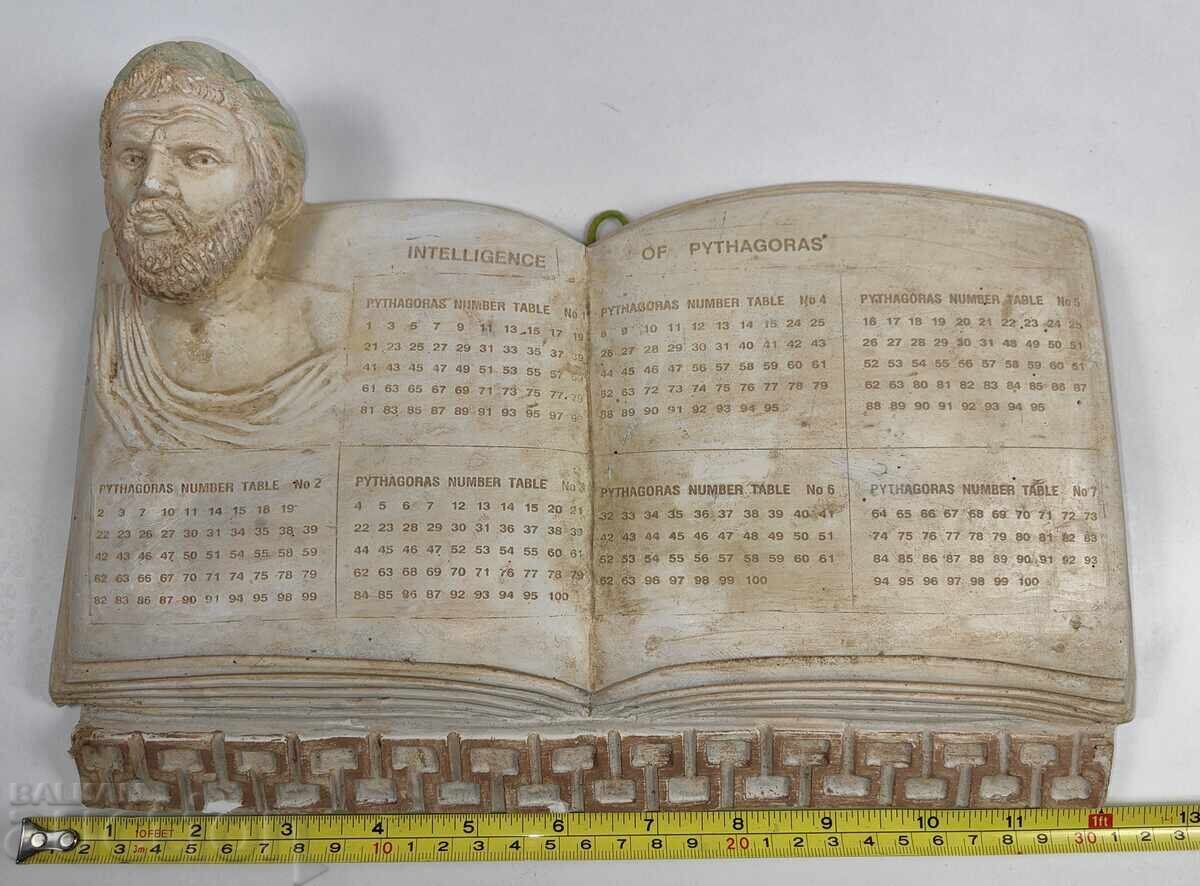 INTELLIGENCE OF PYTHAGORAS
PYTHAGORAS NUMBER TABLE No 1
1 3 5 7 9 11 13 15 17 19
21 23 25 27 29 31 33 35 37 39
41 43 45 47 49 51 53 55 57
61 63 65 67 69 71 73 75 77 79
81 83 85 87 89 91 93 95 97
PYTHAGORAS NUMBER TABLE No 2
2 3 7 10 11 14 15 18 19
22 23 26 27 30 31 34 35 38 39
42 43 46 47 50 51 54 55 58 59
62 63 66 67 70 71 74 75 78 79
82 83 86 87 90 91 94 95 98 99
PYTHAGORAS NUMBER TABLE No 3
4 5 6 7 12 13 14 15 20 21
22 23 28 29 30 31 36 37 38 39
44 45 46 47 52 53 54 55 60 61
62 63 68 69 70 71 76 77 78 79
84 85 86 87 92 93 94 95 100
PYTHAGORAS NUMBER TABLE No 4
8 9 10 11 12 13 14 15 24 25
26 27 28 29 30 31 40 41 42 43
44 45 46 47 56 57 58 59 60 61
62 63 72 73 74 75 76 77 78 79
88 89 90 91 92 93 94 95
PYTHAGORAS NUMBER TABLE No 5
16 17 18 19 20 21 22 23 24 25
26 27 28 29 30 31 48 49 50 51
52 53 54 55 56 57 58 59 60 61
62 63 80 81 82 83 84 85 86 87
88 89 90 91 92 93 94 95
PYTHAGORAS NUMBER TABLE No 6
32 33 34 35 36 37 38 39 40 41
42 43 44 45 46 47 48 49 50 51
52 53 54 55 56 57 58 59 60 61
62 63 96 97 98 99 100
PYTHAGORAS NUMBER TABLE No 7
64 65 66 67 68 69 70 71 72 73
74 75 76 77 78 79 80 81 82 83
84 85 86 87 88 89 90 91 92 93
94 95 96 97 98 99 100
BALKAN
1 10FEET 2 3 4 5 6 7 8 9 10 11 1ft 13
2 3m 3 4 5 6 7 8 9 10 1 2 3 4 5 6 7 8 9 20 1 2 3 4 5 6 7 8 9 30 1 2